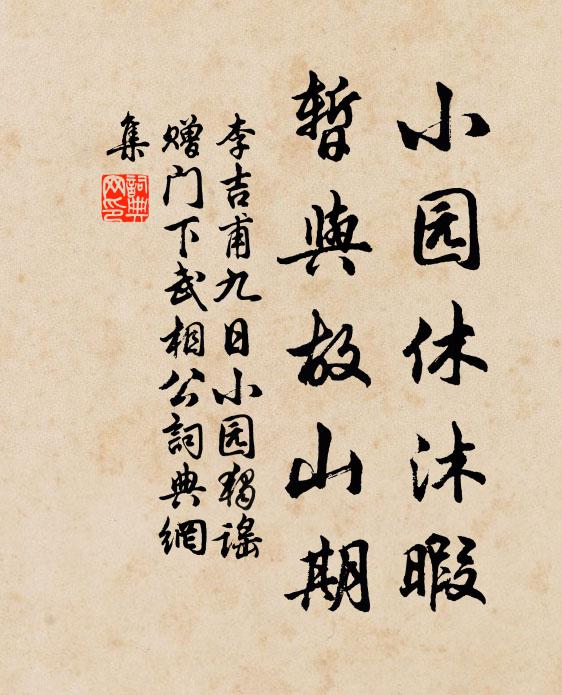 小园休沐暇
暂與故山期
李吉甫九日小园独谣
赠门下武相公詞典網
集
詞典
网印